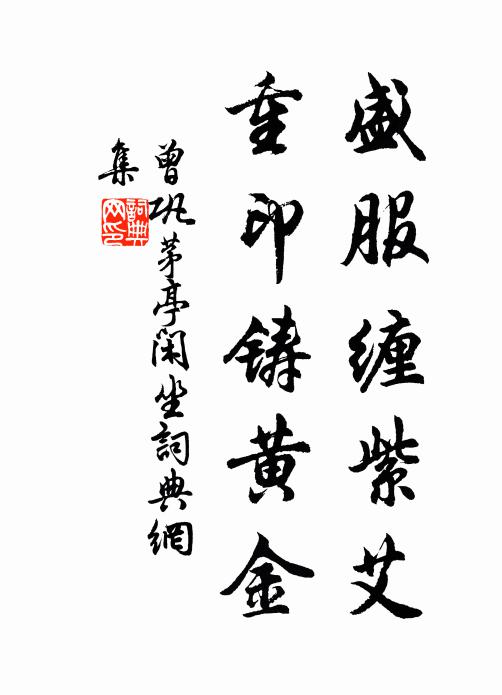 盛服缠紫艾
重印铸黄金
曾巩茅亭闲坐詞典網
集
詞典
网印